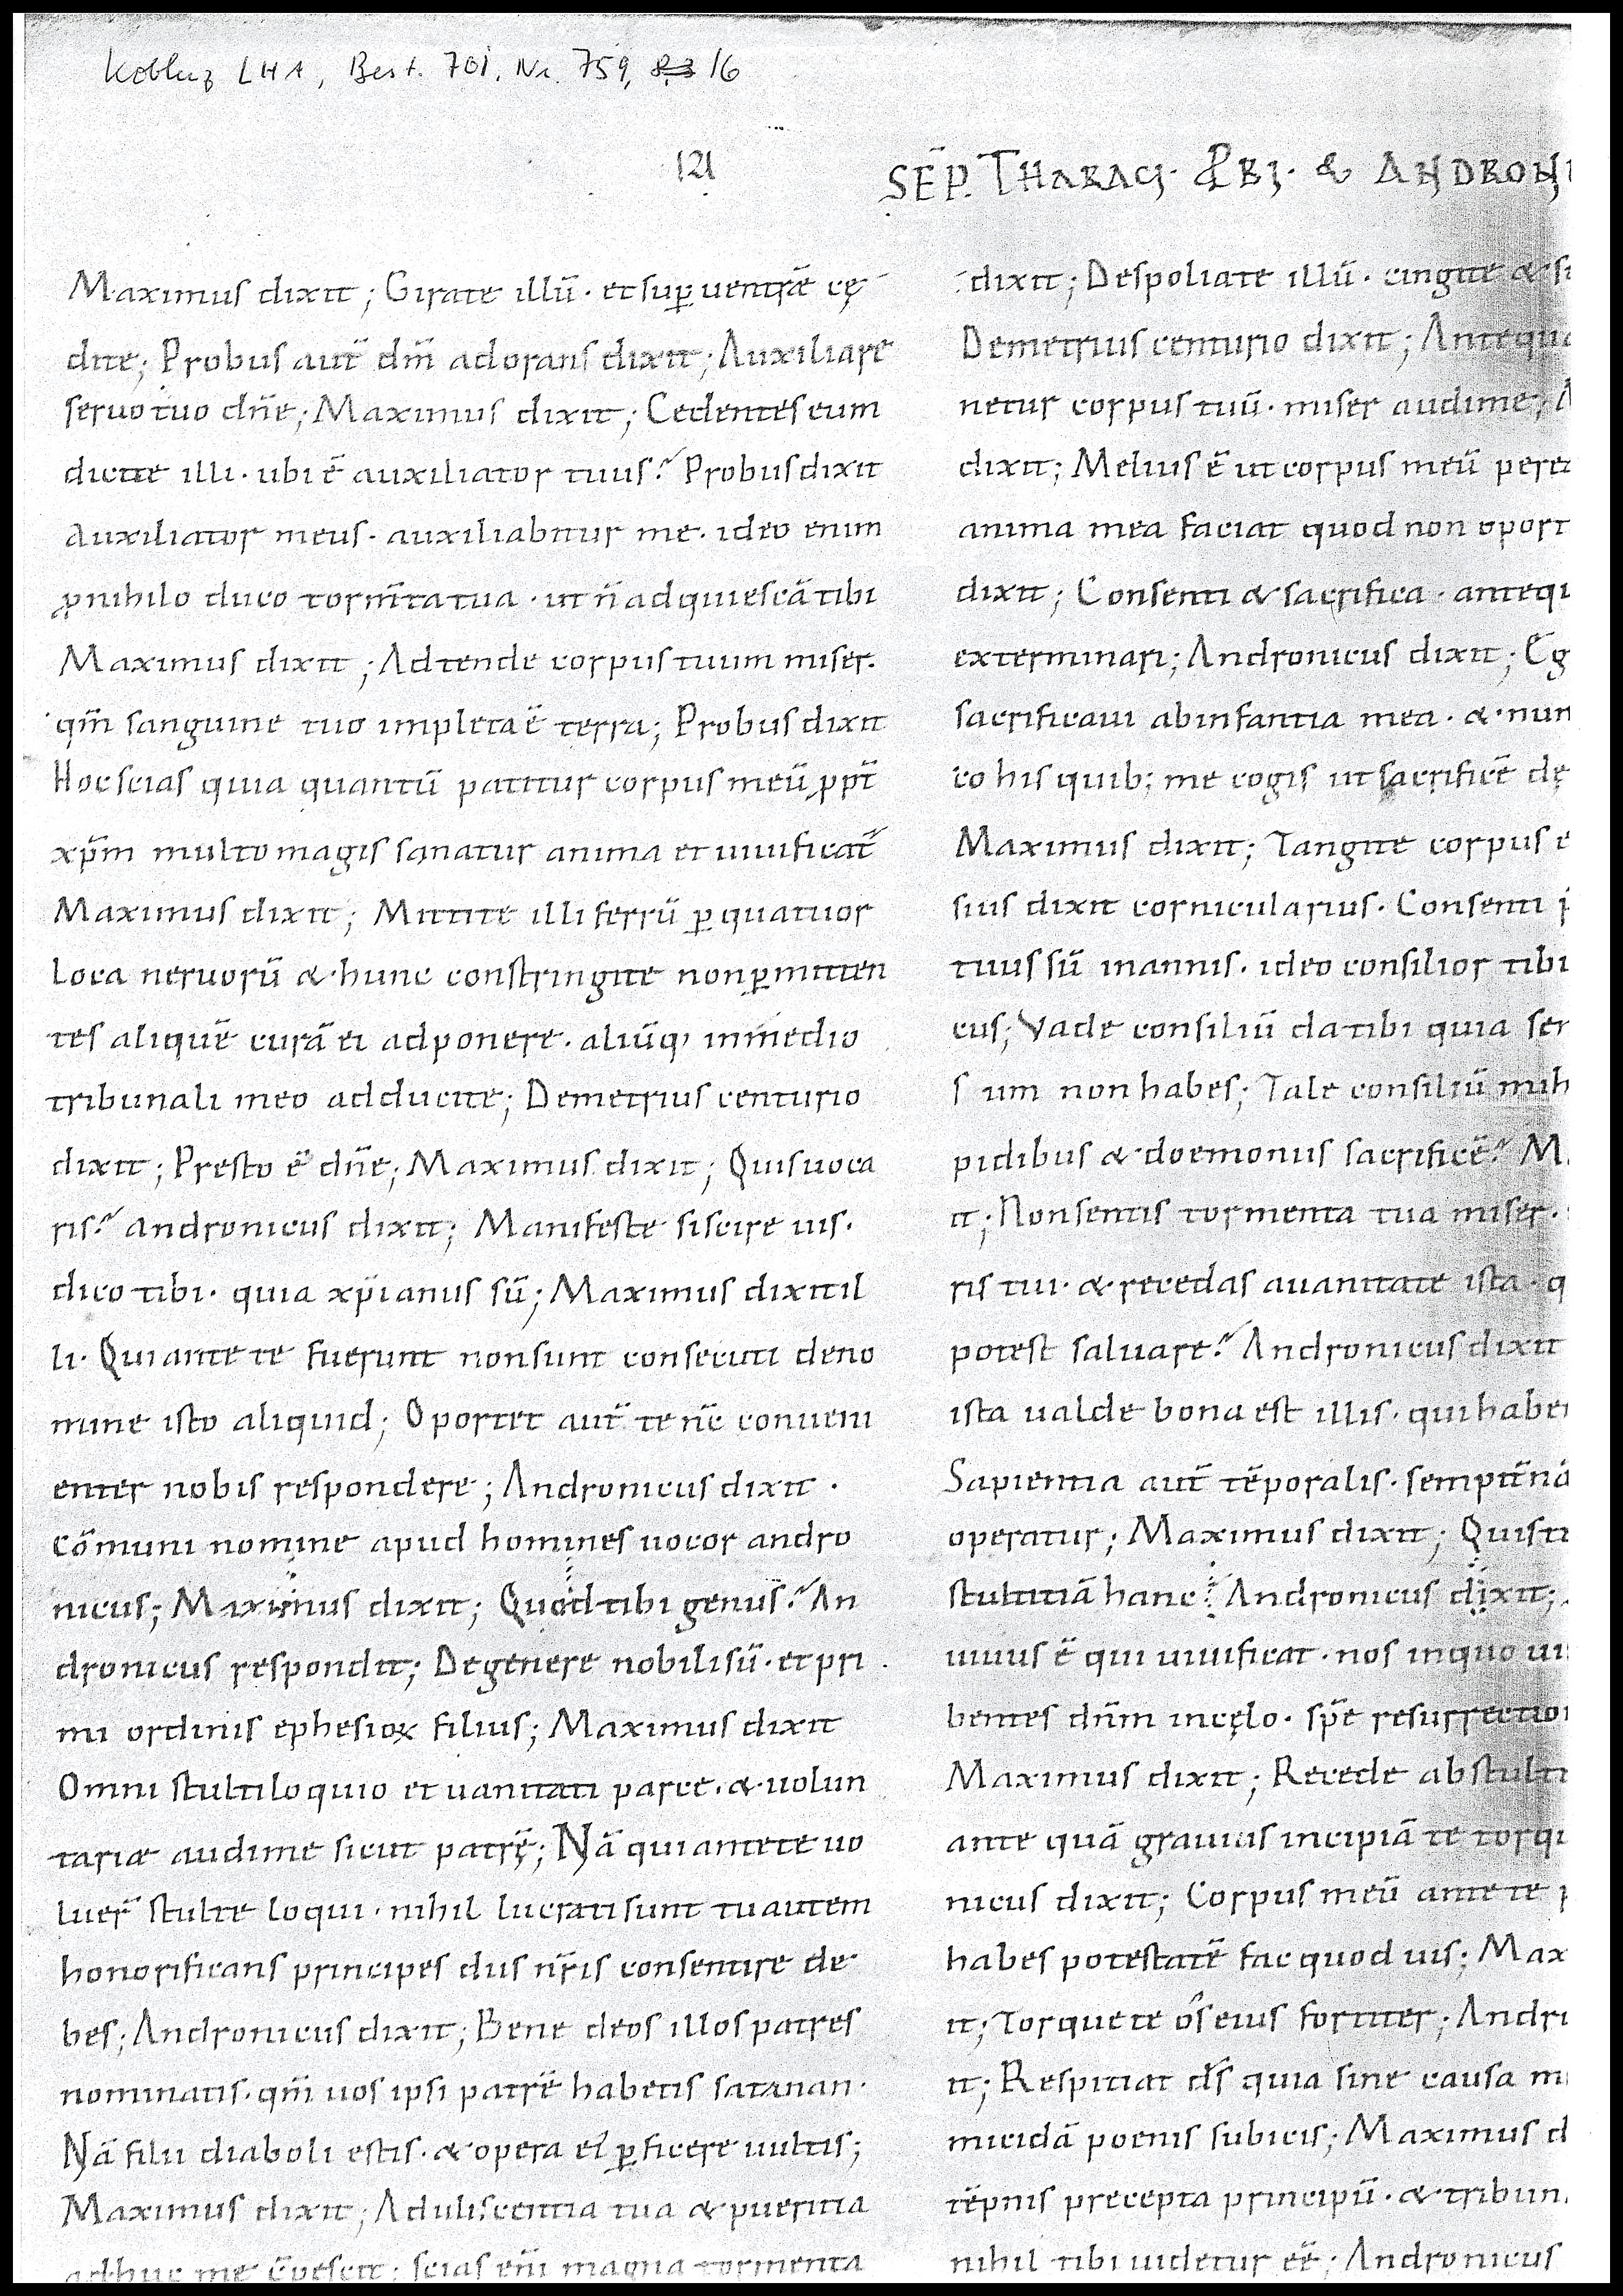 Koblenz LHA, Best. 701, Nr. 759, 16
121
SEP̄. THARACI. PBI. & ANDRONI
Maximus dixit; Girate illū. et sup uentrē cę
dite; Probus aut̄ dm̄ adorans dixit; Auxiliare
seruo tuo dn̄e; Maximus dixit; Cedentes eum
dicite illi. ubi ē auxiliator tuus? Probus dixit
Auxiliator meus. auxiliabitur me. ideo enim
ꝓ nihilo duco torm̄ta tua. ut n̄ adquiescā tibi
Maximus dixit; Adtende corpus tuum miser.
qm̄ sanguine tuo impleta ē terra; Probus dixit
Hoc scias quia quantū patitur corpus meū ꝓpt̄
xp̄m multo magis sanatur anima et uiuificat̄
Maximus dixit; Mittite illi ferrū ꝑ quatuor
loca neruorū & hunc constringite non ꝑmitten
tes aliquē curā ei adponere. aliūq, in medio
tribunali meo adducite; Demetrius centurio
dixit; Presto ē dn̄e; Maximus dixit; Quis uoca
ris? andronicus dixit; Manifeste si scire uis.
dico tibi. quia xp̄ianus sū; Maximus dixit il
li. Qui ante te fuerunt non sunt consecuti de no
mine isto aliquid; Oportet aut̄ te nc̄ conueni
enter nobis respondere; Andronicus dixit.
cōmuni nomine apud homines uocor andro
nicus; Maximus dixit; Quod tibi genus? An
dronicus respondit; De genere nobili sū. et pri
mi ordinis ephesioꝝ filius; Maximus dixit
Omni stultiloquio et uanitati parce. & uolun
tariæ audi me sicut patrē; Nā qui ante te uo
luer̄ stulte loqui. nihil lucrati sunt tu autem
honorificans principes diis nr̄is consentire de
bes; Andronicus dixit; Bene deos illos patres
nominatis. qm̄ uos ipsi patrē habetis satanan.
Nā filii diaboli estis. & opera ei ꝑficere uultis;
Maximus dixit; Aduliscentia tua & pueritia
adhuc me scias eni magna tormenta
dixit; Despoliate illū. cingite & su
Demetrius centurio dixit; Antequa
netur corpus tuū. miser audi me; A
dixit; Melius ē ut corpus meū pere
anima mea faciat quod non oport
dixit; Consenti & sacrifica. antequ
exterminari; Andronicus dixit; Eg
sacrificaui ab infantia mea. & nun
co his quib; me cogis ut sacrificē dę
Maximus dixit; Tangite corpus e
sius dixit cornicularius. Consenti p
tuus sū in annis. ideo consilior tibi
cus; Vade consiliū da tibi quia sen
s um non habes; Tale consiliū mih
pidibus & doemoniis sacrificē? M
it; Non sentis tormenta tua miser.
ris tui. & recedas a uanitate ista. q
potest saluare? Andronicus dixit
ista ualde bona est illis. qui haben
Sapientia aut̄ tēporalis. sempit̄nā
operatur; Maximus dixit; Quis ti
stultitiā hanc? Andronicus dixit;
uiuus ē qui uiuificat. nos in quo ui
bentes dn̄m in cęlo. spē resurrection
Maximus dixit; Recede ab stulti
ante quā grauius incipiā te torqu
nicus dixit; Corpus meū ante te p
habes potestatē fac quod uis; Max
it; Torquete ōs eius fortiter; Andro
it; Respiciat d̄s quia sine causa m
micidā poenis subicis; Maximus d
tēpnis precepta principū. & tribun
nihil tibi uidetur eē; Andronicus